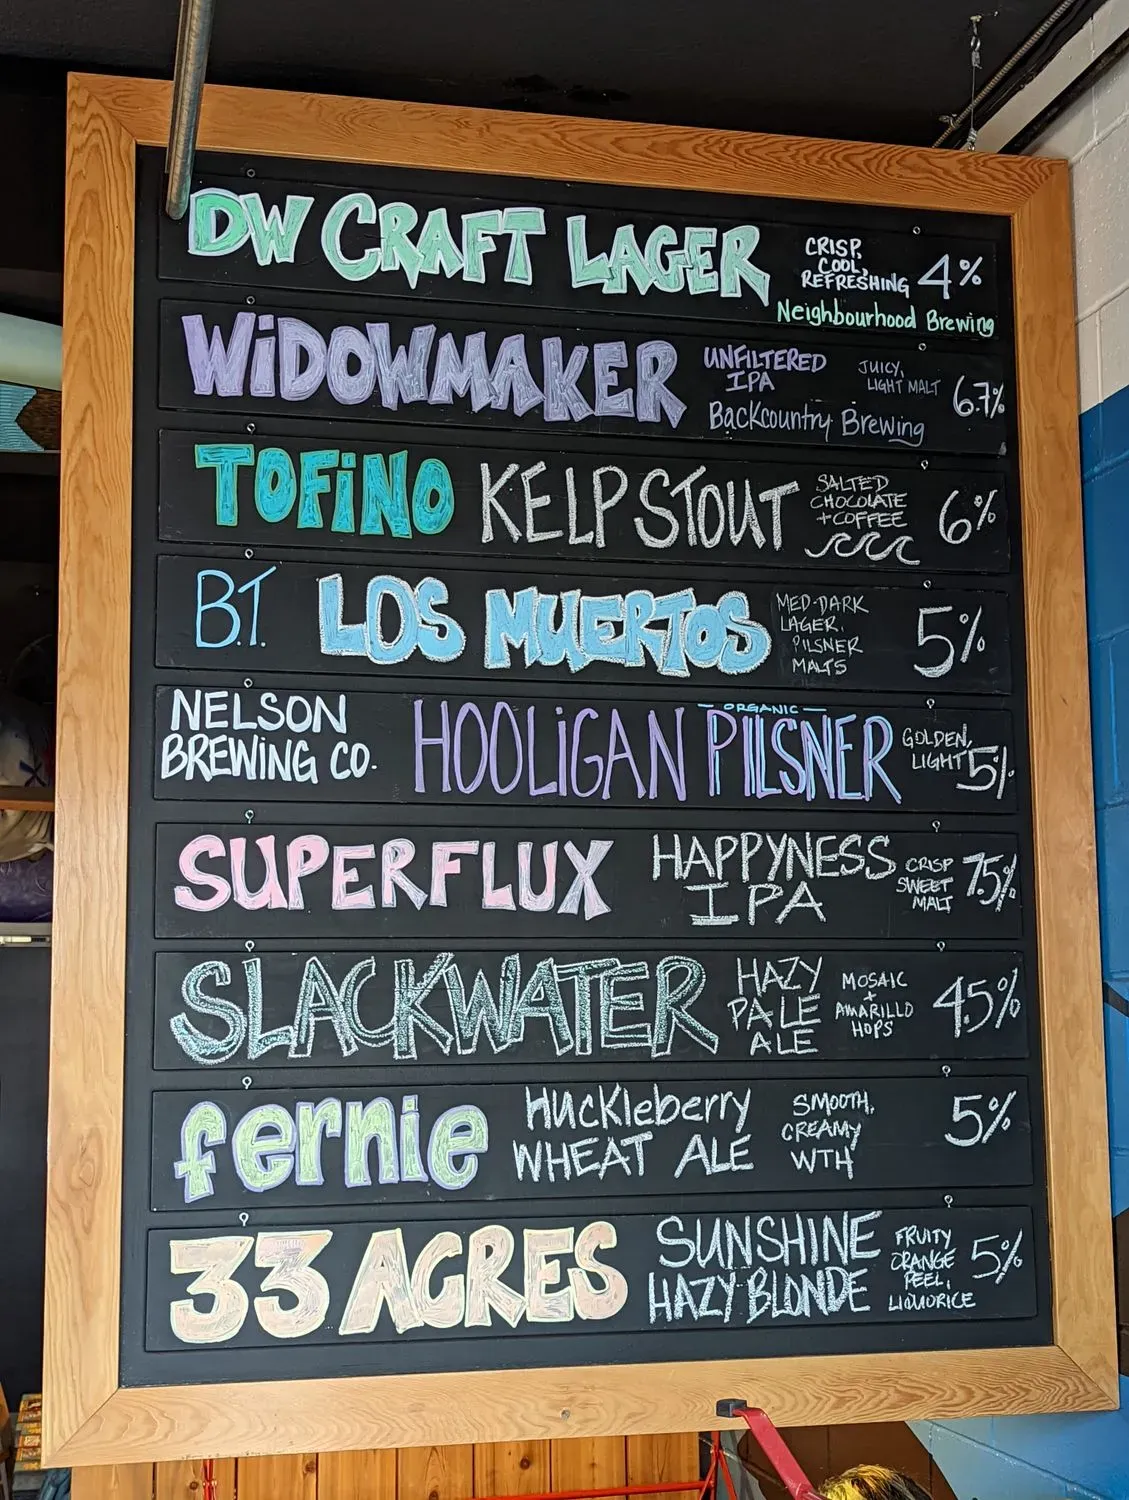 DW CRAFT LAGER
CRISP,
COOL,
REFRESHING
4%
Neighbourhood Brewing
WiDOWMAKER
UNFILTERED
IPA
JUICY,
LIGHT MALT
6.7%
Backcountry Brewing
TOFiNO KELP STOUT
SALTED
CHOCOLATE
+COFFEE
6%
B.T. LOS MUERTOS
MED-DARK
LAGER,
PILSNER
MALTS
5%
NELSON
BREWING CO.
HOOLiGAN PILSNER
- ORGANIC -
GOLDEN,
LIGHT
5%
SUPERFLUX
HAPPYNESS
IPA
CRISP
SWEET
MALT
7.5%
SLACKWATER
HAZY
PALE
ALE
MOSAIC
+
AMARILLO
HOPS
4.5%
fernie
HUCKleberry
WHEAT ALE
SMOOTH,
CREAMY
WTH
5%
33 ACRES
SUNSHINE
HAZY BLONDE
FRUITY
ORANGE
PEEL,
LIQUORICE
5%